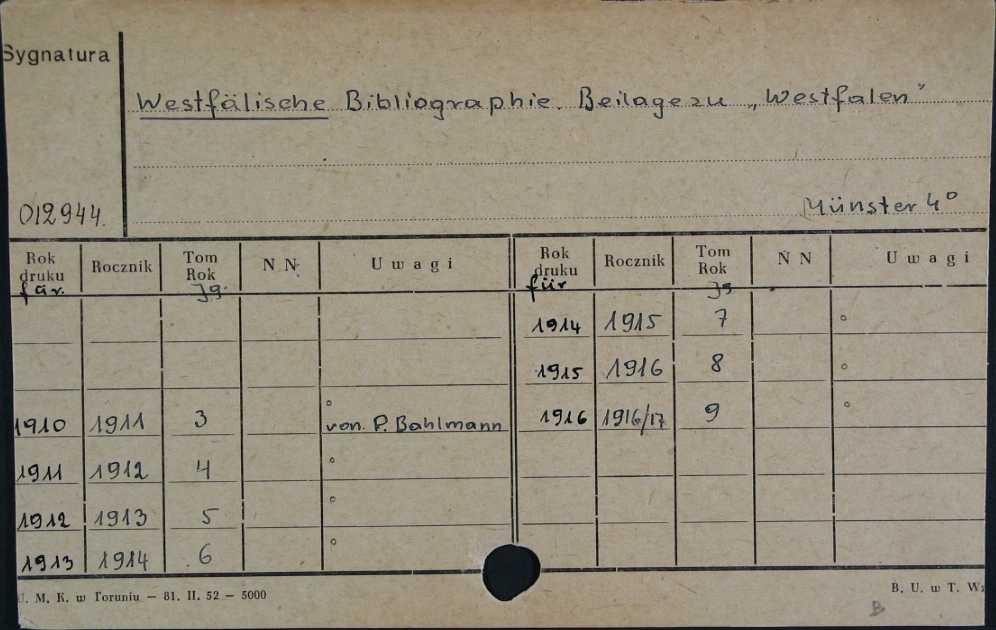 Sygnatura
Westfälische Bibliographie. Beilage zu „Westfalen"
012944.
Münster 4°
Rok druku Rocznik Tom Rok N N. Uwagi Rok druku Rocznik Tom Rok N N Uwagi
für. Jg. für Jg
1914 1915 7 °
1915 1916 8 °
1910 1911 3 ° von P. Bahlmann 1916 1916/17 9 °
1911 1912 4 °
1912 1913 5 °
1913 1914 6 °
. M. K. w Toruniu — 81. II. 52 — 5000
B. U. w T. W
B